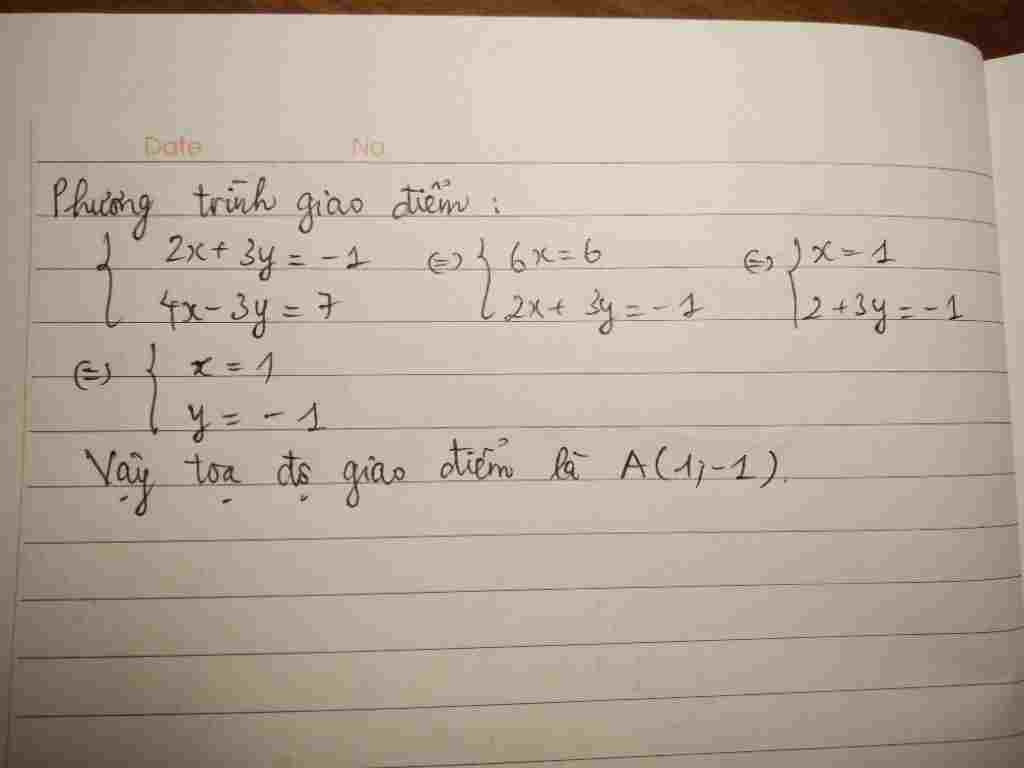 Date No
Phương trình giao điểm :
{ 2x + 3y = -1 ⇔ { 6x = 6 ⇔ { x = 1
4x - 3y = 7 2x + 3y = -1 2 + 3y = -1
⇔ { x = 1
y = -1
Vậy toạ độ giao điểm là A(1;-1).